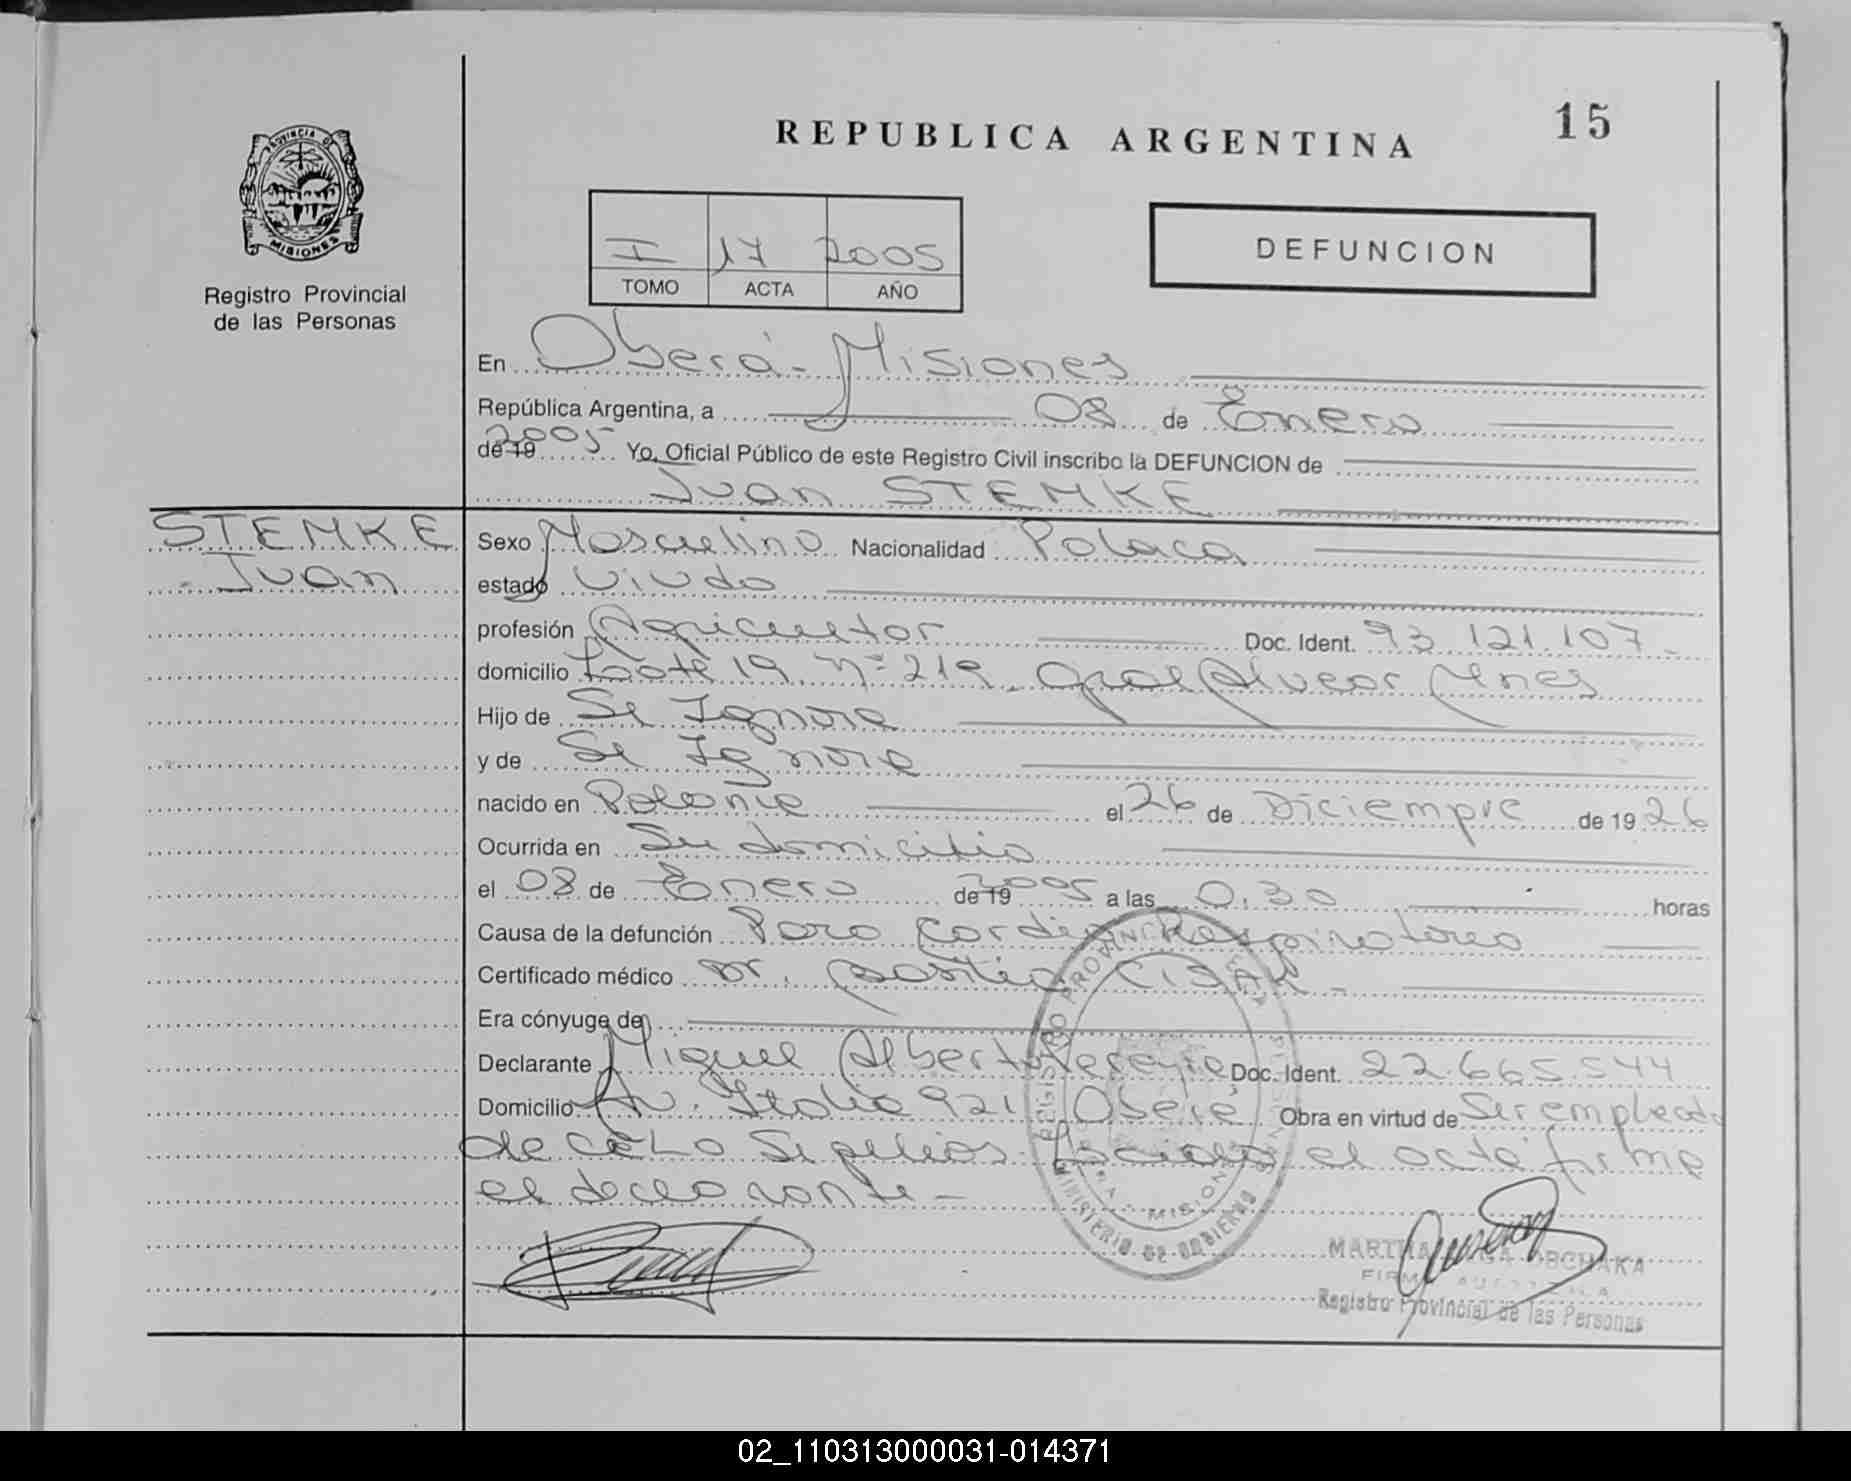 15
REPUBLICA ARGENTINA
PROVINCIA DE
MISIONES
Registro Provincial
de las Personas
I 17 2005
TOMO ACTA AÑO
DEFUNCION
En Oberá - Misiones
República Argentina, a 08 de Enero
de 19 2005 Yo, Oficial Público de este Registro Civil inscribo la DEFUNCION de
Juan STEMKE
STEMKE
Juan
Sexo Masculino Nacionalidad Polaca
estado Viudo
profesión Agricultor Doc. Ident. 93.121.107
domicilio Lote 19 nº 219 Gral Alvear Mnes
Hijo de Se Ignora
y de Se Ignora
nacido en Polonia el 26 de Diciempre de 1926
Ocurrida en Su domicilio
el 08 de Enero de 19 2005 a las 0.30 horas
Causa de la defunción Paro Cardio Respiratorio
Certificado médico Dr.
Era cónyuge de
Declarante Miguel Alberto Pereyra Doc. Ident. 22.665.544
Domicilio Av. Italia 921 Oberá Obra en virtud de Ser empleado
de CELO Sepelios Sociales el acta firma
el declarante -
REGISTRO PROVINCIAL DE LAS PERSONAS
MISIONES
MINISTERIO DE GOBIERNO
MARTHA OLGA OBCHAKA
FIRMA AUTORIZADA
Registro Provincial de las Personas
02_110313000031-014371